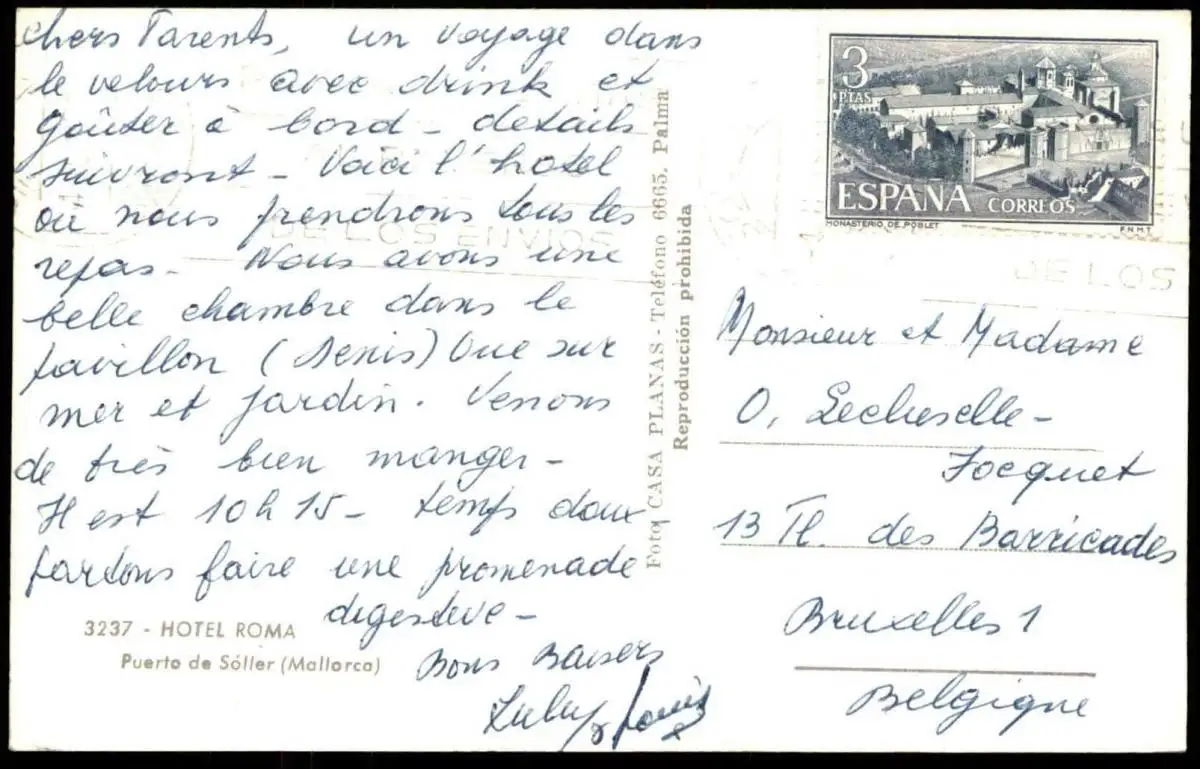 Chers Parents, un voyage dans
le velours avec drink et
goûter à bord - details
suivront - Voici l'hotel
où nous prendrons tous les
repas - Nous avons une
belle chambre dans le
pavillon (Denis) Vue sur
mer et jardin. Venons
de très bien manger -
Il est 10 h 15 - temps doux
partons faire une promenade
digestive -
Bons Baisers
3237 - HOTEL ROMA
Puerto de Sóller (Mallorca)
Foto CASA PLANAS - Teléfono 6665. Palma
Reproducción prohibida
3
PTAS
ESPAÑA CORREOS
MONASTERIO DE POBLET
F.N.M.T.
DE LOS ENVIOS
DE LOS
Monsieur et Madame
O. Lechuselle -
Jocquet
13 Pl. des Barricades
Bruxelles 1
Belgique